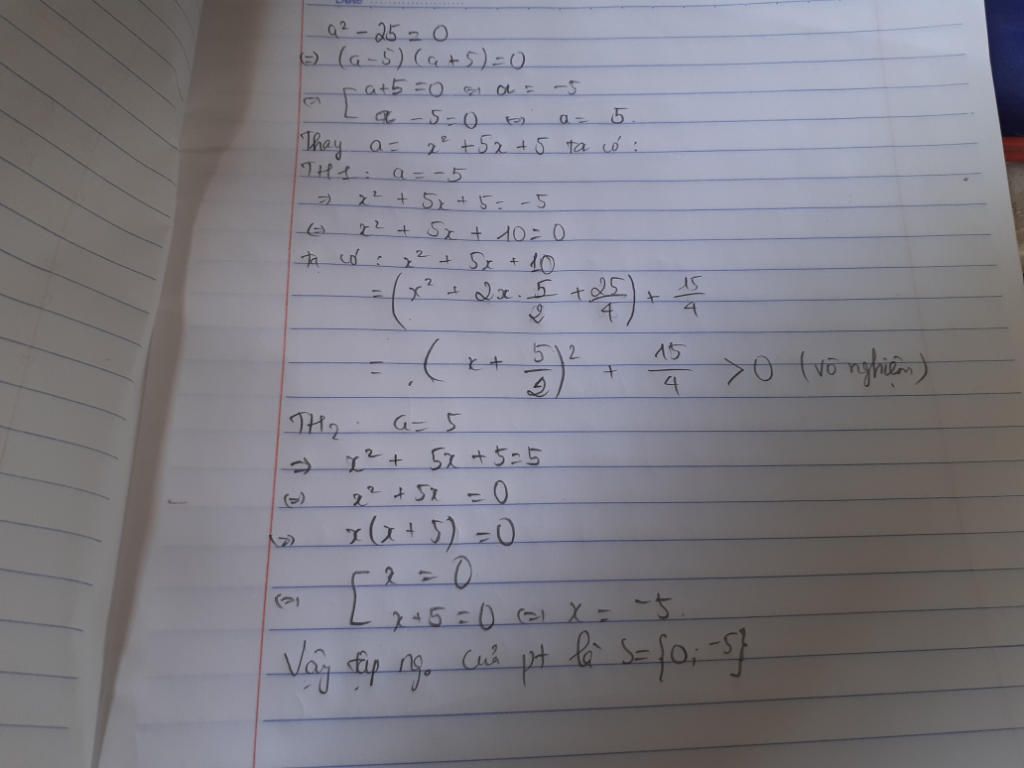 a² - 25 = 0
⇔ (a - 5) (a + 5) = 0
⇔ [ a + 5 = 0 ⇔ a = -5
a - 5 = 0 ⇔ a = 5.
Thay a = x² + 5x + 5 ta có :
TH1 : a = -5
⇒ x² + 5x + 5 = -5
⇔ x² + 5x + 10 = 0
ta có : x² + 5x + 10
= (x² + 2x · 5/2 + 25/4) + 15/4
= (x + 5/2)² + 15/4 > 0 (vô nghiệm)
TH2 : a = 5
⇒ x² + 5x + 5 = 5
⇔ x² + 5x = 0
⇔ x(x + 5) = 0
⇔ [ x = 0
x + 5 = 0 ⇔ x = -5.
Vậy tập ng. của pt là S = {0; -5}